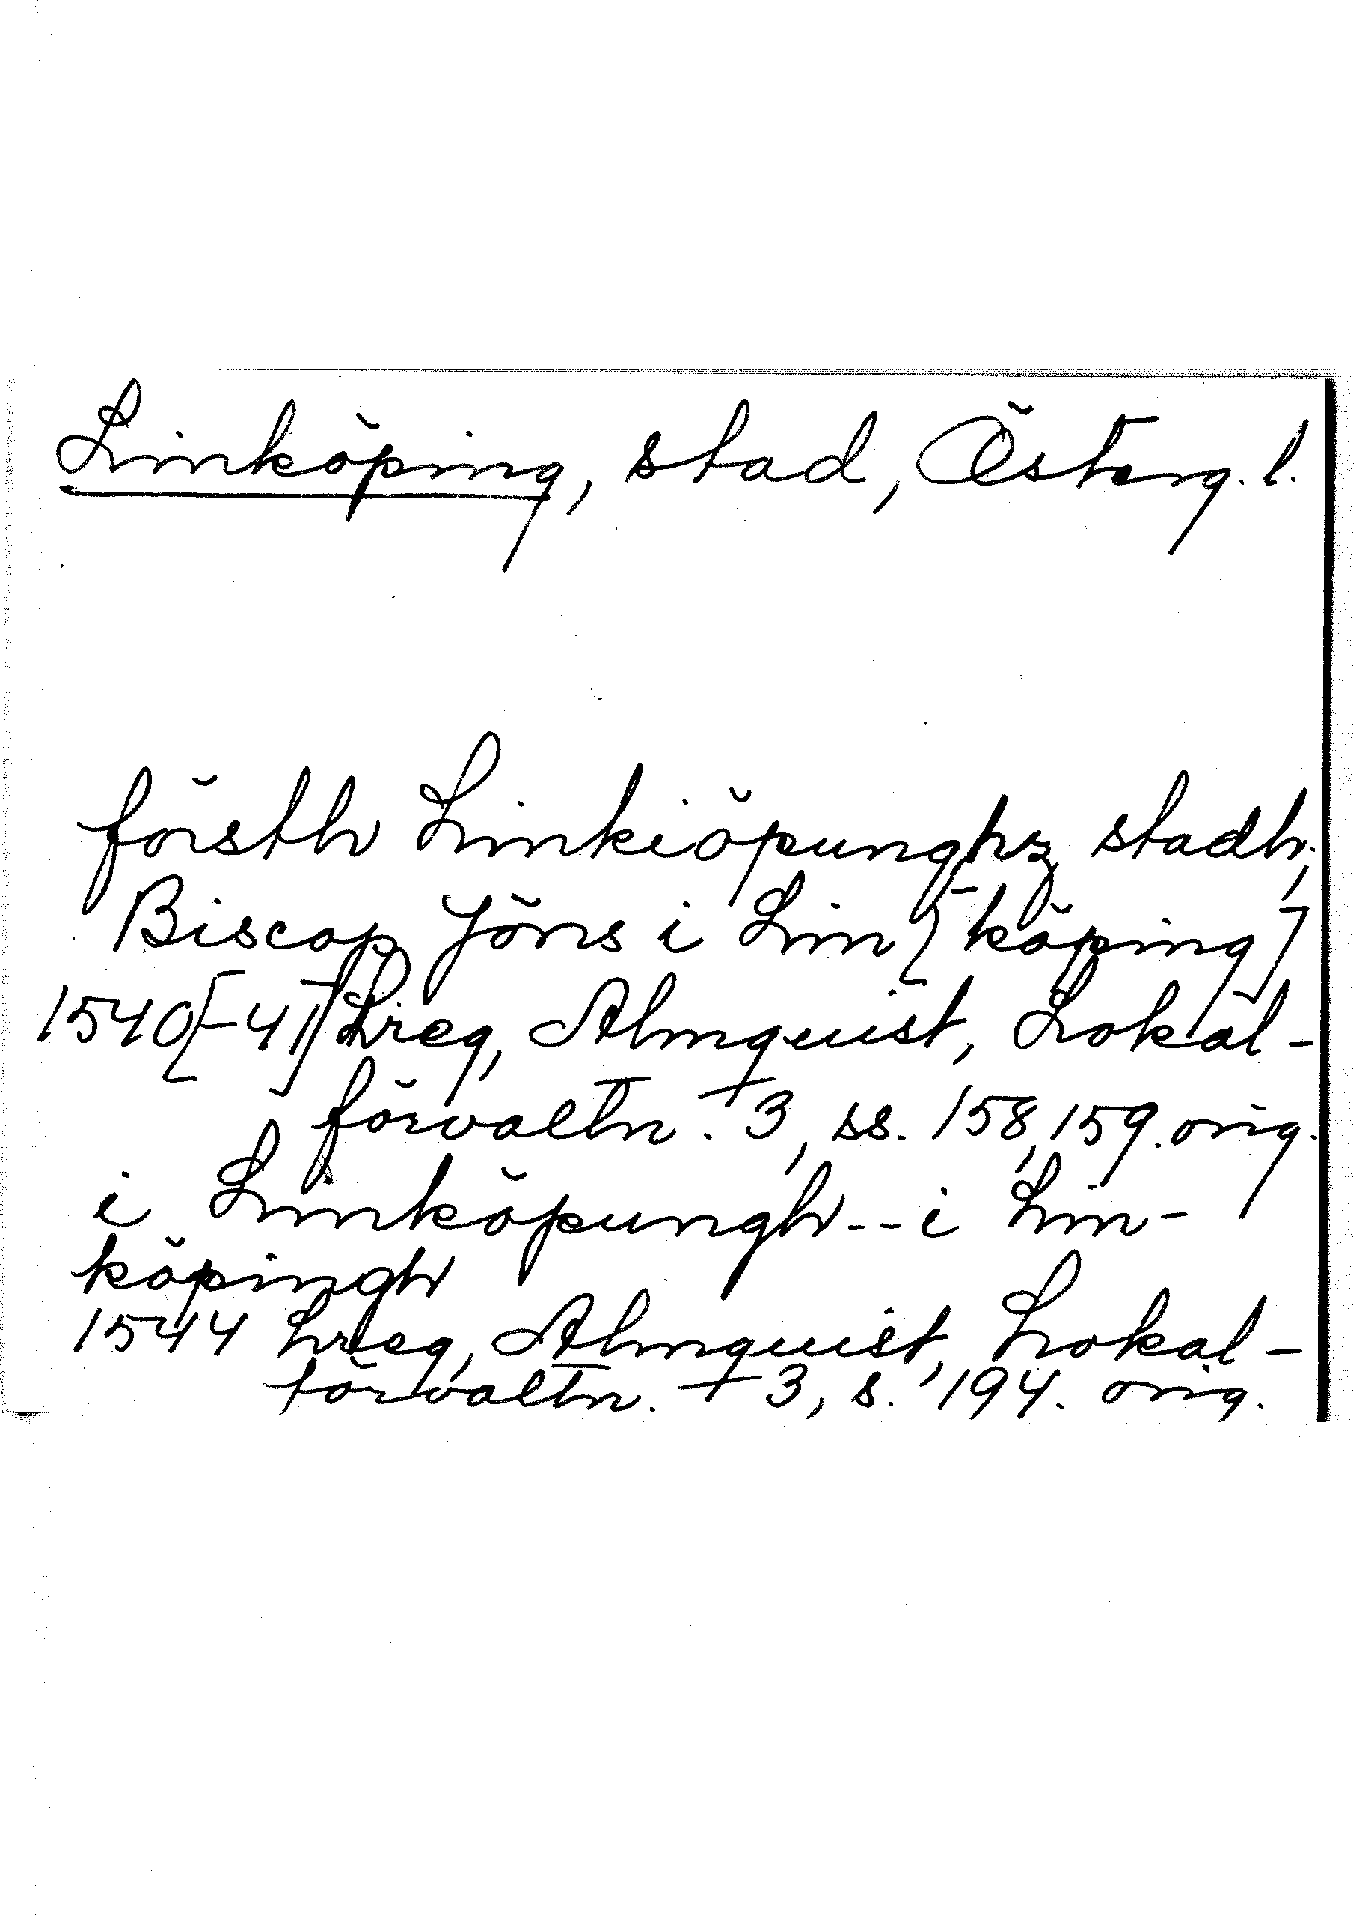 Linköping, stad, Österg. l.
försth Linkiöpunghz stadh,
Biscop Jöns i Lin[köping]
1540[-41] Lreg, Almquist, Lokal-
förvaltn. + 3, ss. 158, 159. orig.
i Linköpungh -- i Lin-
köpingh
1544 Lreg, Almquist, Lokal-
förvaltn. + 3, s. 194. orig.